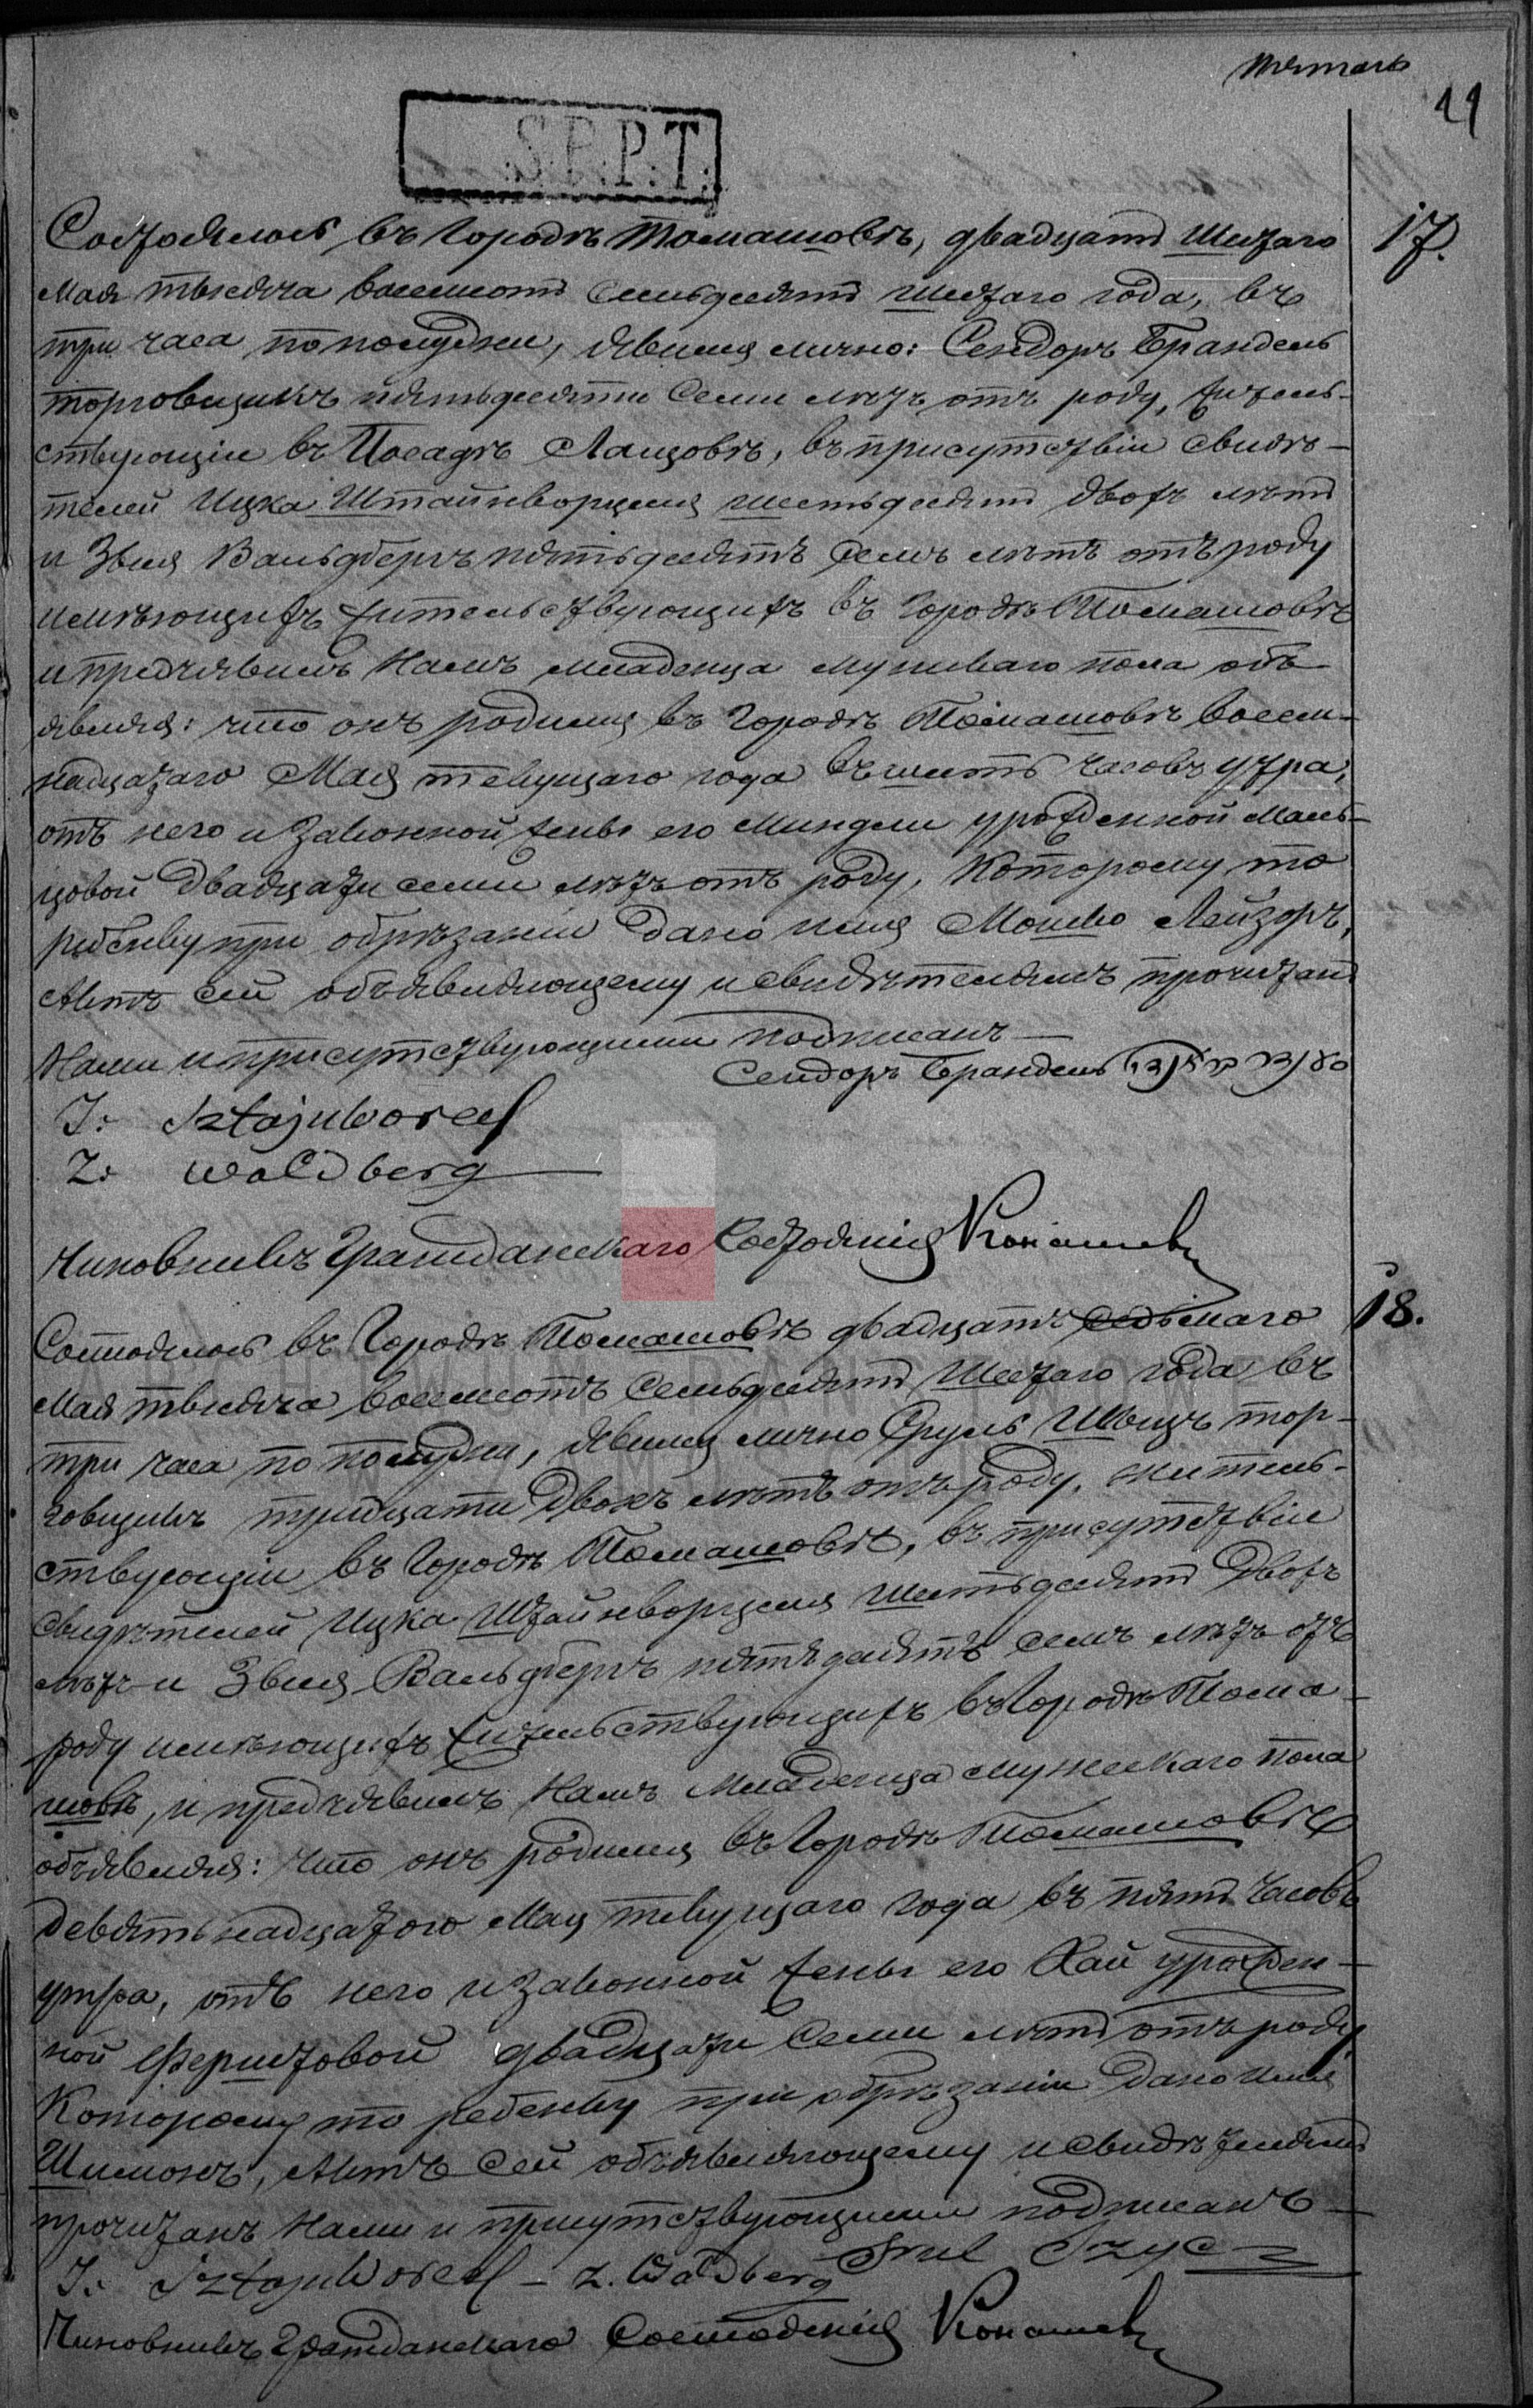 11
S.P.P.T.
17.
Состоялось въ городѣ Томашовѣ, двадцать шестаго
Мая тысяча восемсотъ семьдесятъ шестаго года, въ
три часа пополудни, явился лично: Сендоръ Брандель
торговщикъ пятьдесяти семи лѣтъ отъ роду, житель-
ствующій въ Посадѣ Лащовѣ, въ присутствіи свидѣ-
телей Ицка Штайнворцеля шестьдесятъ двохъ лѣтъ
и Звля Вальдбергъ пятьдесятъ семъ лѣтъ отъ роду
имѣющихъ жительствующихъ въ городѣ Томашовѣ
и предъявилъ намъ младенца мужскаго пола объ-
являя: что онъ родился въ городѣ Томашовѣ восем-
надцатаго Мая текущаго года въ шесть часовъ утра,
отъ него и законной жены его Миндли урожденной Маль-
цовой двадцати семи лѣтъ отъ роду, которому то
ребенку при обрѣзаніи дано имя Мошко Лейзоръ,
Актъ сей объявляющему и свидѣтелямъ прочитанъ
Нами и присутствующими подписанъ
Сендоръ Брандель
I. Sztajnworcel
Z. Waldberg
Чиновникъ Гражданскаго Состоянія
18.
Состоялось въ городѣ Томашовѣ двадцать седьмаго
Мая тысяча восемсотъ семьдесятъ шестаго года въ
три часа по полудни, явился лично Сруль Шыцъ тор-
говщикъ тридцати двохъ лѣтъ отъ роду, житель-
ствующій въ городѣ Томашовѣ, въ присутствіи
свидѣтелей Ицка Штайнворцеля шестьдесятъ двохъ
лѣтъ и Звля Вальдбергъ пятьдесятъ семъ лѣтъ отъ
роду имѣющихъ жительствующихъ въ городѣ Тома-
шовѣ, и предъявилъ намъ младенца мужескаго пола
объявляя: что онъ родился въ городѣ Томашовѣ
девятьнадцатого Мая текущаго года въ пять часовъ
утра, отъ него и законной жены его Хаи урожден-
ной Ферштовой двадцати семи лѣтъ отъ роду
Которому то ребенку при обрѣзаніи дано имя
Шимонъ, Актъ сей объявляющему и свидѣтелямъ
прочитанъ Нами и присутствующими подписанъ
Srul Szyc
I. Sztajnworcel – Z. Waldberg
Чиновникъ Гражданскаго Состоянія